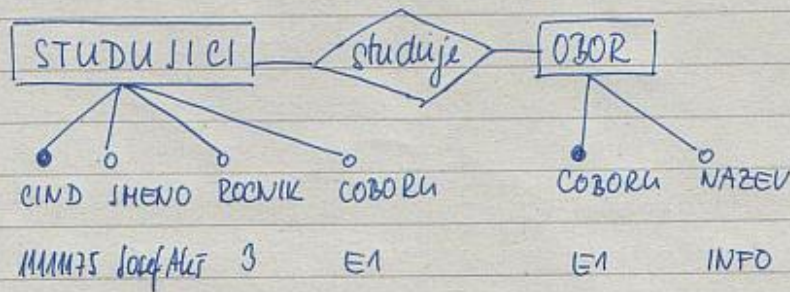 STUDUJICI studuje OBOR
CIND JMENO ROCNIK COBORU COBORU NAZEV
3 E1 E1 INFO